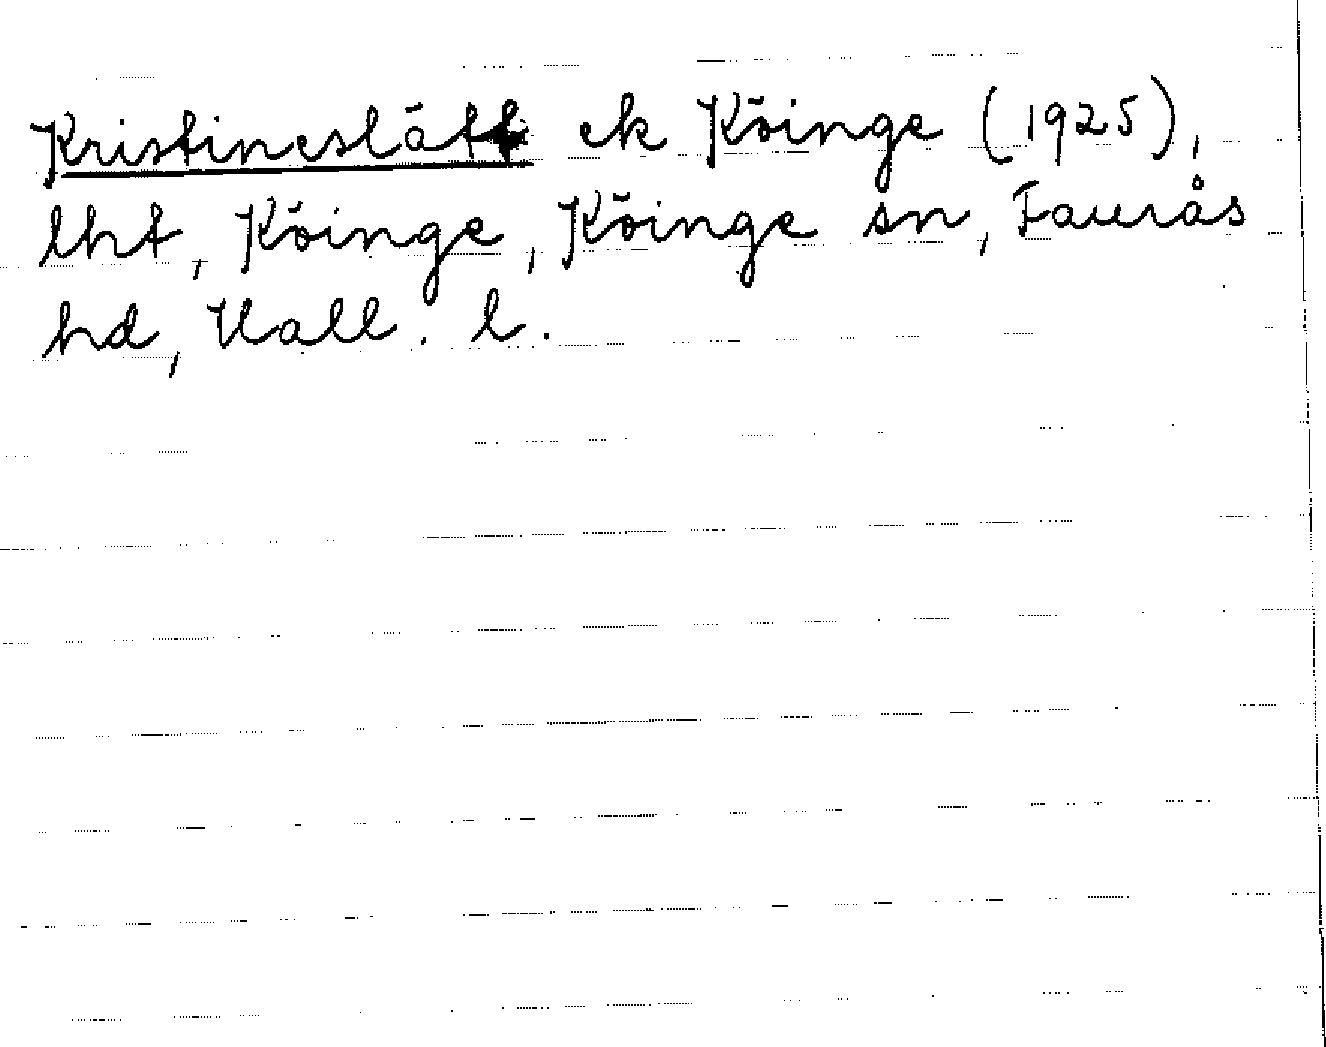 Kristineslätt ek Köinge (1925),
lht, Köinge, Köinge sn, Faurås
hd, Hall. l.